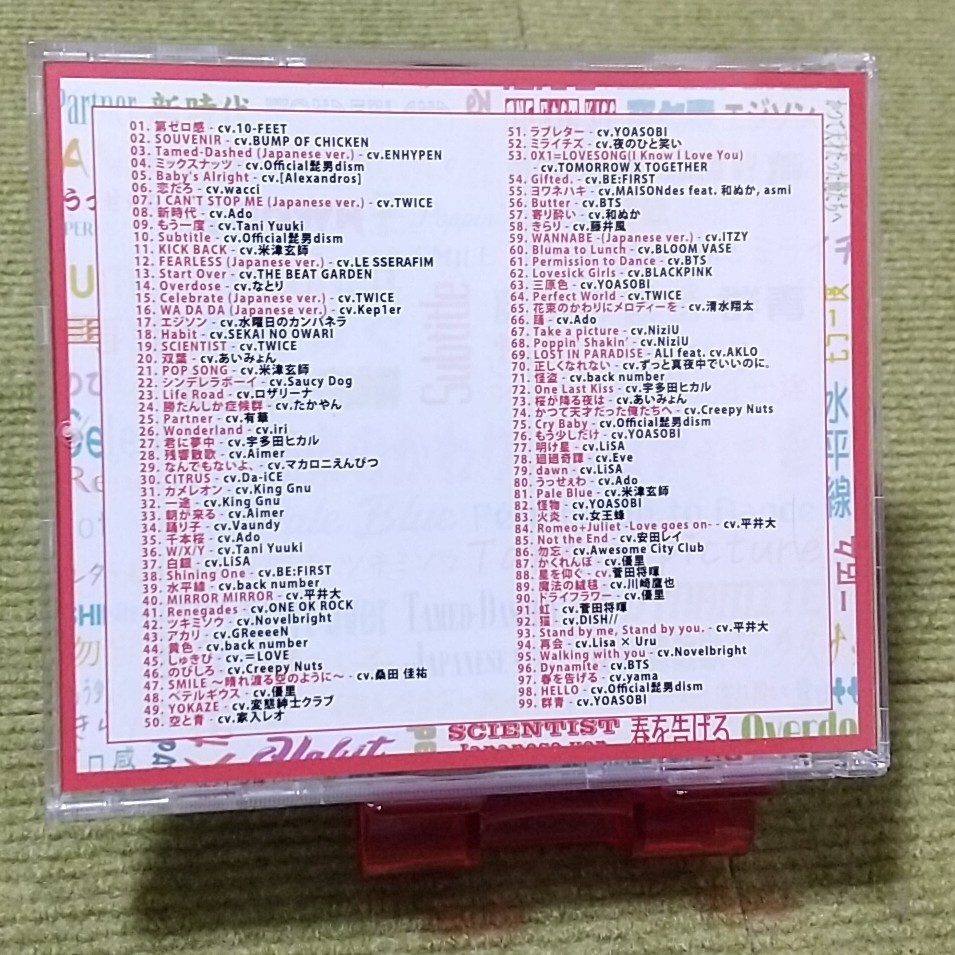 Partner 新時代
エジソン
01. 第ゼロ感 - cv.10-FEET
02. SOUVENIR - cv.BUMP OF CHICKEN
03. Tamed-Dashed (Japanese ver.) - cv.ENHYPEN
04. ミックスナッツ - cv.Official髭男dism
05. Baby's Alright - cv.[Alexandros]
06. 恋だろ - cv.wacci
07. I CAN'T STOP ME (Japanese ver.) - cv.TWICE
08. 新時代 - cv.Ado
09. もう一度 - cv.Tani Yuuki
10. Subtitle - cv.Official髭男dism
11. KICK BACK - cv.米津玄師
12. FEARLESS (Japanese ver.) - cv.LE SSERAFIM
13. Start Over - cv.THE BEAT GARDEN
14. Overdose - cv.なとり
15. Celebrate (Japanese ver.) - cv.TWICE
16. WA DA DA (Japanese ver.) - cv.Kep1er
17. エジソン - cv.水曜日のカンパネラ
18. Habit - cv.SEKAI NO OWARI
19. SCIENTIST - cv.TWICE
20. 双葉 - cv.あいみょん
21. POP SONG - cv.米津玄師
22. シンデレラボーイ - cv.Saucy Dog
23. Life Road - cv.ロザリーナ
24. 勝たんしか症候群 - cv.たかやん
25. Partner - cv.有華
26. Wonderland - cv.iri
27. 君に夢中 - cv.宇多田ヒカル
28. 残響散歌 - cv.Aimer
29. なんでもないよ、 - cv.マカロニえんぴつ
30. CITRUS - cv.Da-iCE
31. カメレオン - cv.King Gnu
32. 一途 - cv.King Gnu
33. 朝が来る - cv.Aimer
34. 踊り子 - cv.Vaundy
35. 千本桜 - cv.Ado
36. W/X/Y - cv.Tani Yuuki
37. 白銀 - cv.LiSA
38. Shining One - cv.BE:FIRST
39. 水平線 - cv.back number
40. MIRROR MIRROR - cv.平井大
41. Renegades - cv.ONE OK ROCK
42. ツキミソウ - cv.Novelbright
43. アカリ - cv.GReeeeN
44. 黄色 - cv.back number
45. しゅきぴ - cv.=LOVE
46. のびしろ - cv.Creepy Nuts
47. SMILE ～晴れ渡る空のように～ - cv.桑田 佳祐
48. ベテルギウス - cv.優里
49. YOKAZE - cv.変態紳士クラブ
50. 空と青 - cv.家入レオ
51. ラブレター - cv.YOASOBI
52. ミライチズ - cv.夜のひと笑い
53. 0X1=LOVESONG(I Know I Love You)
- cv.TOMORROW X TOGETHER
54. Gifted. - cv.BE:FIRST
55. ヨワネハキ - cv.MAISONdes feat. 和ぬか, asmi
56. Butter - cv.BTS
57. 寄り酔い - cv.和ぬか
58. きらり - cv.藤井風
59. WANNABE -(Japanese ver.) - cv.ITZY
60. Bluma to Lunch - cv.BLOOM VASE
61. Permission to Dance - cv.BTS
62. Lovesick Girls - cv.BLACKPINK
63. 三原色 - cv.YOASOBI
64. Perfect World - cv.TWICE
65. 花束のかわりにメロディーを - cv.清水翔太
66. 踊 - cv.Ado
67. Take a picture - cv.NiziU
68. Poppin' Shakin' - cv.NiziU
69. LOST IN PARADISE - ALI feat. cv.AKLO
70. 正しくなれない - cv.ずっと真夜中でいいのに。
71. 怪盗 - cv.back number
72. One Last Kiss - cv.宇多田ヒカル
73. 桜が降る夜は - cv.あいみょん
74. かつて天才だった俺たちへ - cv.Creepy Nuts
75. Cry Baby - cv.Official髭男dism
76. もう少しだけ - cv.YOASOBI
77. 明け星 - cv.LiSA
78. 廻廻奇譚 - cv.Eve
79. dawn - cv.LiSA
80. うっせぇわ - cv.Ado
81. Pale Blue - cv.米津玄師
82. 怪物 - cv.YOASOBI
83. 火炎 - cv.女王蜂
84. Romeo+Juliet -Love goes on- - cv.平井大
85. Not the End - cv.安田レイ
86. 勿忘 - cv.Awesome City Club
87. かくれんぼ - cv.優里
88. 星を仰ぐ - cv.菅田将暉
89. 魔法の絨毯 - cv.川崎鷹也
90. ドライフラワー - cv.優里
91. 虹 - cv.菅田将暉
92. 猫 - cv.DISH//
93. Stand by me, Stand by you. - cv.平井大
94. 再会 - cv.Lisa × Uru
95. Walking with you - cv.Novelbright
96. Dynamite - cv.BTS
97. 春を告げる - cv.yama
98. HELLO - cv.Official髭男dism
99. 群青 - cv.YOASOBI
水平線
Subtitle
Habit
SCIENTIST
春を告げる
Overdo